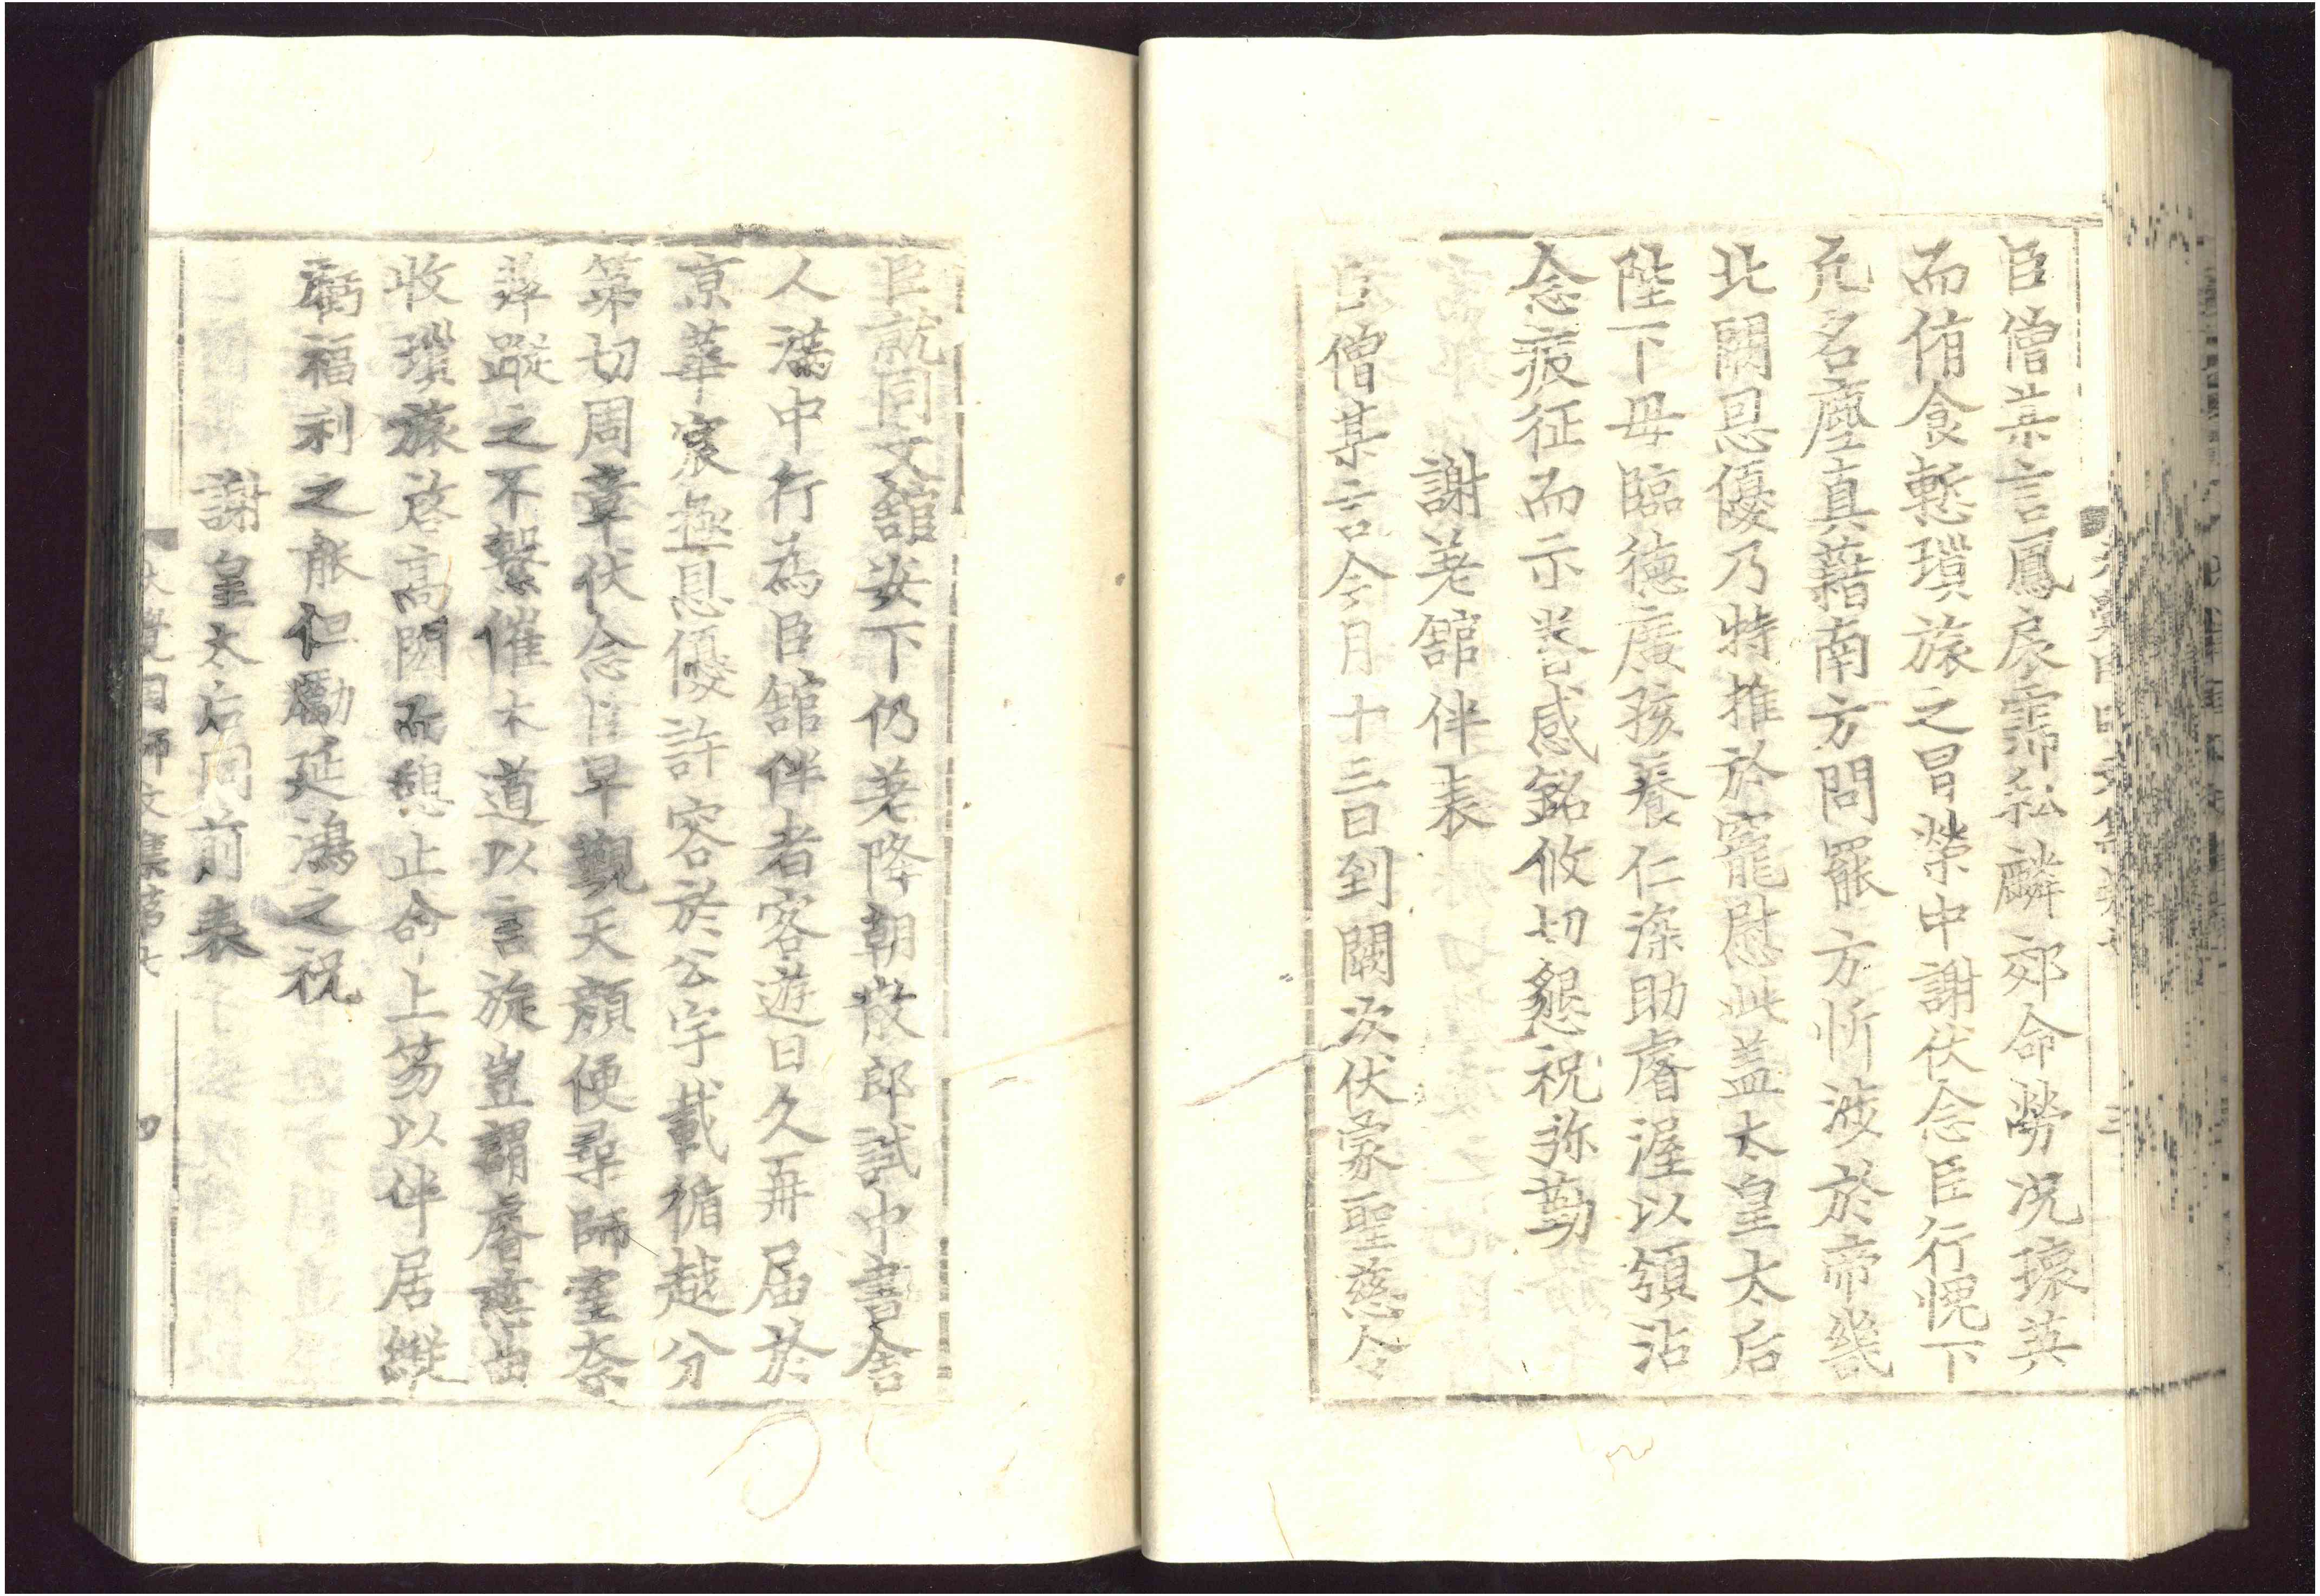 臣僧某言鳳扆霈私麟郊命勞况瓌英
而侑食慙瑣旅之冒榮中謝伏念臣行愧下
凡名塵真藉南方問罷方忻渉於帝畿
北闕恩優乃特推於寵慰此盖太皇太后
陛下母臨德廣孩養仁深助睿渥以領沾
念疲征而示咨感銘攸切懇祝弥勤
謝差舘伴表
臣僧某言今月十三日到闕次伏蒙聖慈令
臣就同文舘安下仍差降朝散郎試中書舍
人滿中行爲臣舘伴者客遊日久再届於
京華宸極恩優許容於公宇載循越分
第切周章伏念臣早覲天顔便尋師室奈
萍蹤之不繫催木道以言旋豈謂睿慈曲
收瑣旅啓高閎而憩止命上笏以伴居緇
福利之能但勵延鴻之祝
謝皇太后同前表
大覺國師文集第七
四